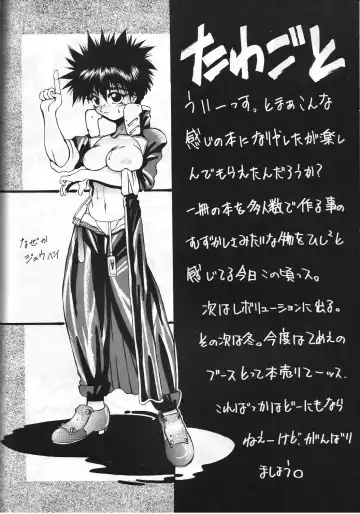 たわごと
うぃーっす。とまぁこんな
感じの本になりやしたが楽し
んでもらえたんだろうか?
一冊の本を多人数で作る事の
むずかしさみたいな物をひし²と
感じてる今日この頃っス。
次はレボリューションに出る。
その次は冬。今度はてめえの
ブースとって本売りてーッス
こればっかはどーにもなら
ねえーけど、がんばり
ましょう。
なぜか
ジュウベイ